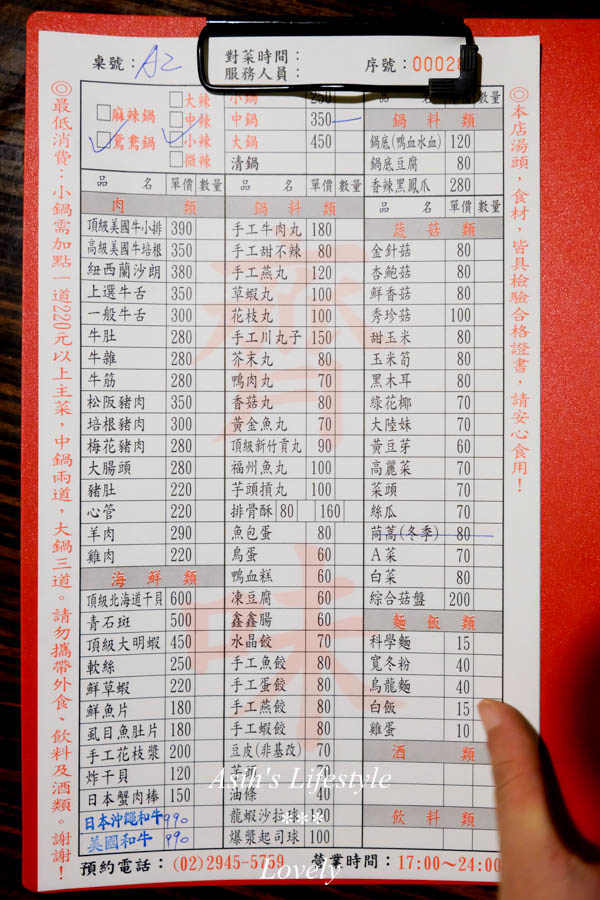 桌號： A2
對菜時間：
服務人員：
序號： 00028
◎最低消費：小鍋需加點一道220元以上主菜，中鍋兩道，大鍋三道。請勿攜帶外食、飲料及酒類。謝謝！
麻辣鍋
鴛鴦鍋
大辣
中辣
小辣
微辣
小鍋 250
中鍋 350
大鍋 450
清鍋
品 名 單價 數量
肉 類
頂級美國牛小排 390
高級美國牛培根 350
紐西蘭沙朗 380
上選牛舌 350
一般牛舌 300
牛肚 280
牛雜 280
牛筋 280
松阪豬肉 350
培根豬肉 300
梅花豬肉 280
大腸頭 280
豬肚 220
心管 220
羊肉 290
雞肉 220
海 鮮 類
頂級北海道干貝 600
青石斑 500
頂級大明蝦 450
軟絲 250
鮮草蝦 220
鮮魚片 180
虱目魚肚片 180
手工花枝漿 200
炸干貝 120
日本蟹肉棒 150
日本沖繩和牛 990
美國和牛 990
品 名 單價 數量
鍋 料 類
手工牛肉丸 180
手工甜不辣 80
手工燕丸 120
草蝦丸 100
花枝丸 100
手工川丸子 150
芥末丸 80
鴨肉丸 70
香菇丸 80
黃金魚丸 70
頂級新竹貢丸 90
福州魚丸 100
芋頭摃丸 100
排骨酥 80 160
魚包蛋 80
鳥蛋 60
鴨血糕 60
凍豆腐 60
鑫鑫腸 60
水晶餃 70
手工魚餃 80
手工蛋餃 80
手工燕餃 80
手工蝦餃 80
豆皮(非基改) 70
芋頭
油條 40
龍蝦沙拉球 120
爆漿起司球 100
品 名 單價 數量
鍋 料 類
鍋底(鴨血水血) 120
鍋底豆腐 80
香辣黑鳳爪 280
品 名 單價 數量
蔬 菇 類
金針菇 80
杏鮑菇 80
鮮香菇 80
秀珍菇 100
甜玉米 80
玉米筍 80
黑木耳 80
綠花椰 70
大陸妹 70
黃豆芽 60
高麗菜 70
菜頭 70
絲瓜 70
茼蒿(冬季) 80
A菜 70
白菜 80
綜合菇盤 200
麵 飯 類
科學麵 15
寬冬粉 40
烏龍麵 40
白飯 15
雞蛋 10
酒 類
飲 料 類
◎本店湯頭，食材，皆具檢驗合格證書，請安心食用！
齊味
Asih's Lifestyle
***
Lovely
預約電話：(02)2945-5759 營業時間：17:00～24:00